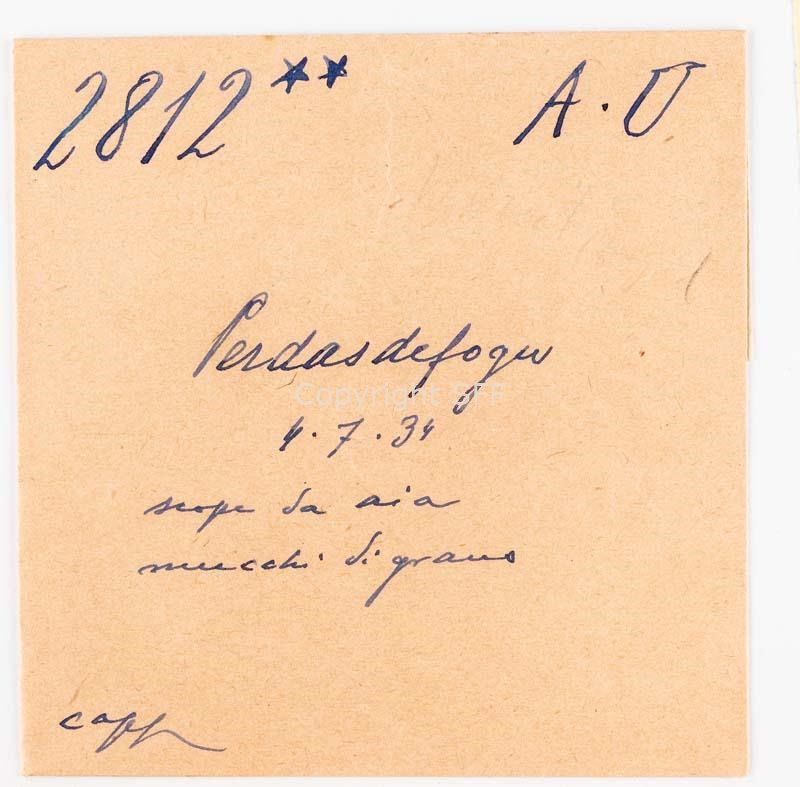 2812** A. U
Perdasdefogu
Copyright SFF
4.7.34
scope da aia
mucchi di grano